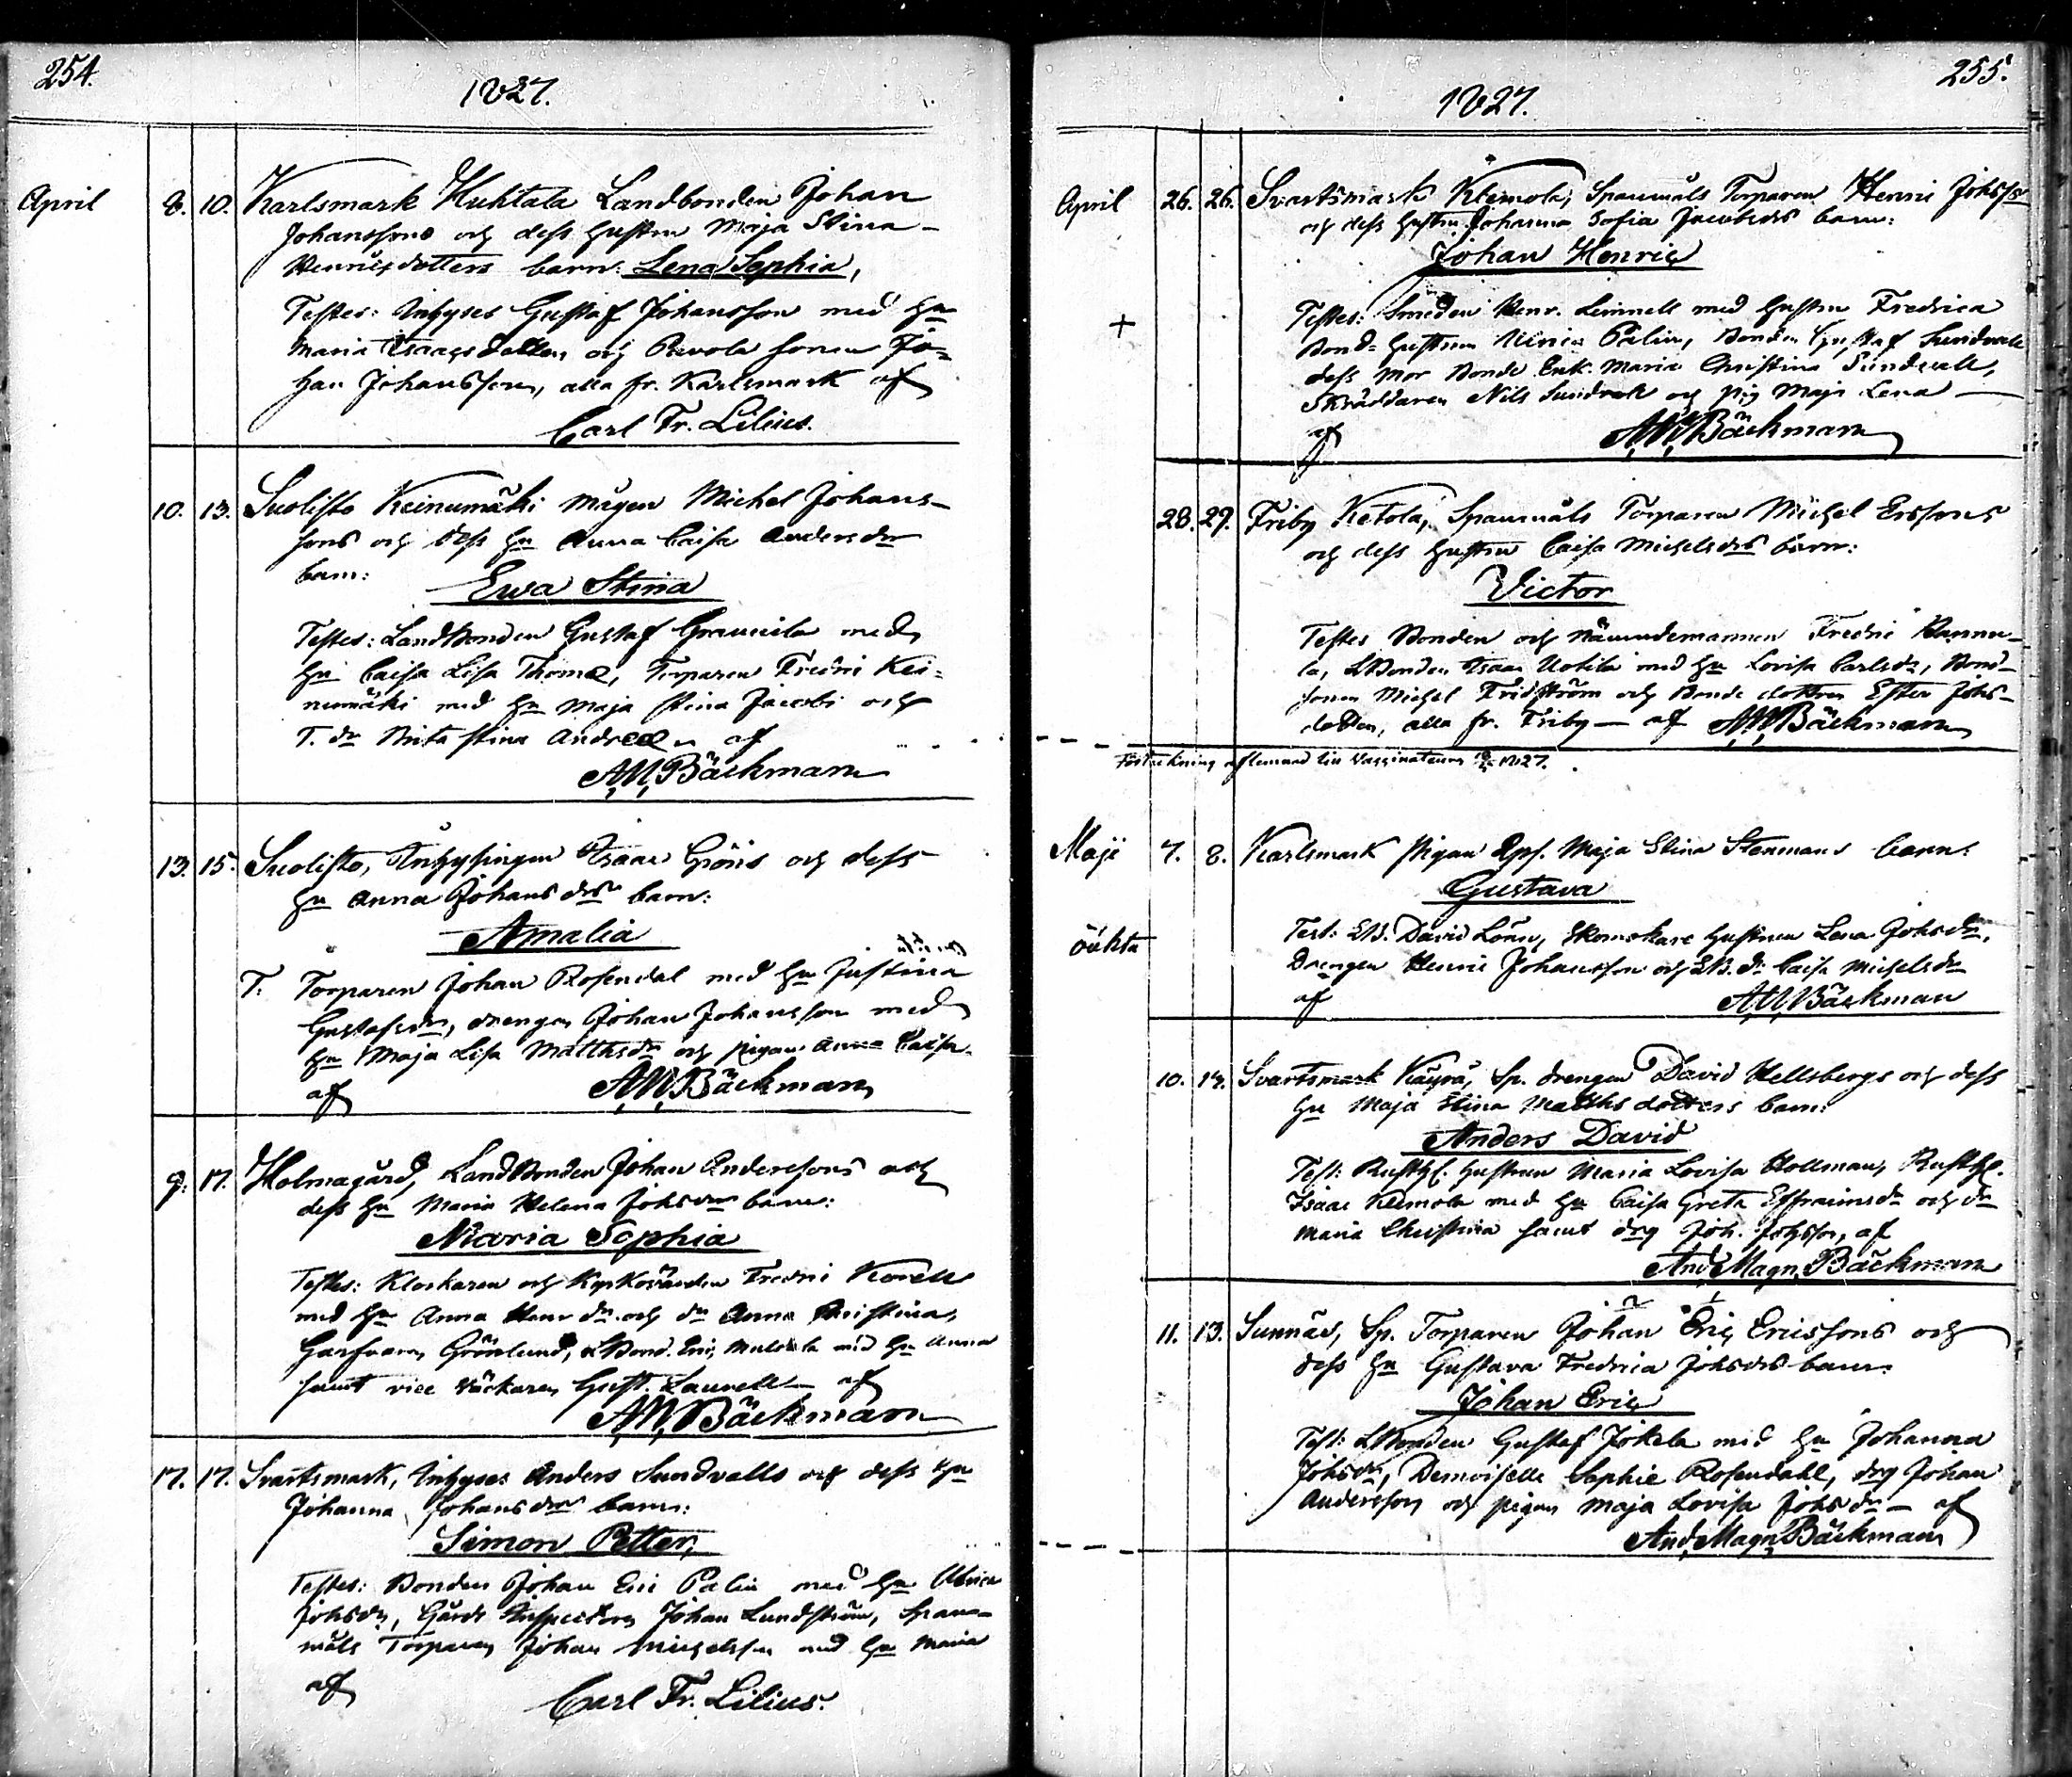 254.
1827.
April 8. 10. Karlsmark Huhtala Landbonden Johan
Johanssons och dess hustru Maja Stina
Henricsdotters barn: Lena Sophia,
Testes: Inhyses Gustaf Johansson med hu
Maria Isaacsdotter och Revola sonen Jo-
han Johansson, alla fr. Karlsmark af
Carl Fr. Lilius.
10. 13. Suolisto Keinumäki mågen Michel Johans-
sons och dess hu Anna Caisa Andersdr
barn:
Ewa Stina
Testes: Landbonden Gustaf Grannila med
hu Caisa Lisa Thomæ, Torparen Fredric Kei-
numäki med hu Maja Stina Jacobi och
T. dr Brita Stina Andreæ af
A,M,Bäckman
13. 15. Suolisto, Inhysingen Isaac Gröns och dess
hu Anna Johansdrs barn:
Amalia
T. Torparen Johan Rosendal med hu Justina
Gustafsdr, drengen Johan Johansson med
hu Maja Lisa Matthsdr och pigan Anna Caisa
af A,M,Bäckman
9. 17. Holmagård, Landbonden Johan Anderssons och
dess hu Maria Helena Johsdrs barn:
Maria Sophia
Testes: Klockaren och Kyrkovärden Fredric Korell
med hu Anna Henrdr och dr Anna Christina,
Garfvaren Grönlund, LBond. Eric med hu Anna
samt vice väckaren Gust. Laurell af
A,M,Bäckman
17. 17. Svartsmark, Inhyses Anders Sundvalls och dess hu
Johanna Johansdrs barn:
Simon Petter,
Testes: Bonden Johan Eric Palin med hu Ulrica
Johsdr, Gårds Inspectoren Johan Lundström, Spann-
måls Torparen Johan Michelsson med hu Maria
af Carl Fr. Lilius.
255.
1827.
April 26. 26. Svartsmark Klemola, Spannmåls Torparen Henric Johss
och dess hustru Johanna Sofia Jacobsdrs barn:
Johan Henric
Testes: Smeden Henr. Limnell med hustru Fredrica
+ Bond- hustrun Ulrica Palin, Bonden Gustaf Sundvall
dess mor Bonde Enk. Maria Christina Sundvall,
Skräddaren Nils Sundvall och pig Maja Lena
af A,M,Bäckman
28. 29. Friby Ketola, Spannmåls Torparen Michel Erssons
och dess hustru Caisa Michelsdrs barn:
Victor
Testes Bonden och Nämndemannen Fredric Hannu-
la, LBonden Isaac Uotila med hu Lovisa Carlsdr, Bond-
sonen Michel Fridström och Bonde dottren Ester Johs-
dotter, alla fr. Friby — af A,M,Bäckman
Förtekning aflemnad till Vaccinateuren 1827.
Maji 7. 8. Karlsmark Pigan Maja Stina Stenmans barn:
Gustava
öäkta Test: LB. David Lönn, Skomakare hustrun Lena Johsdr,
Drengen Henric Johansson och LB. dr Caisa Michelsdr
af A,M,Bäckman
10. 13. Svartsmark Käyrä, Sp. drengen David Hellsbergs och dess
hu Maja Stina Matthsdotters barn:
Anders David
Test: Rusth. hustrun Maria Lovisa Hollman, Rusth.
Isaac Klemola med hu Caisa Greta Effraimsdr och dr
Maria Christina samt drg Joh. Johsson, af
And,Magn,Bäckman
11. 13. Sunnäs, Sp. Torparen Johan Eric Ericssons och
dess hu Gustava Fredrica Johsdrs barn:
Johan Eric
Test: LBonden Gustaf Jokela med hu Johanna
Johsdr, Demoiselle Sophie Rosendahl, drg Johan
Andersson och pigan Maja Lovisa Johsdr — af
And,Magn,Bäckman